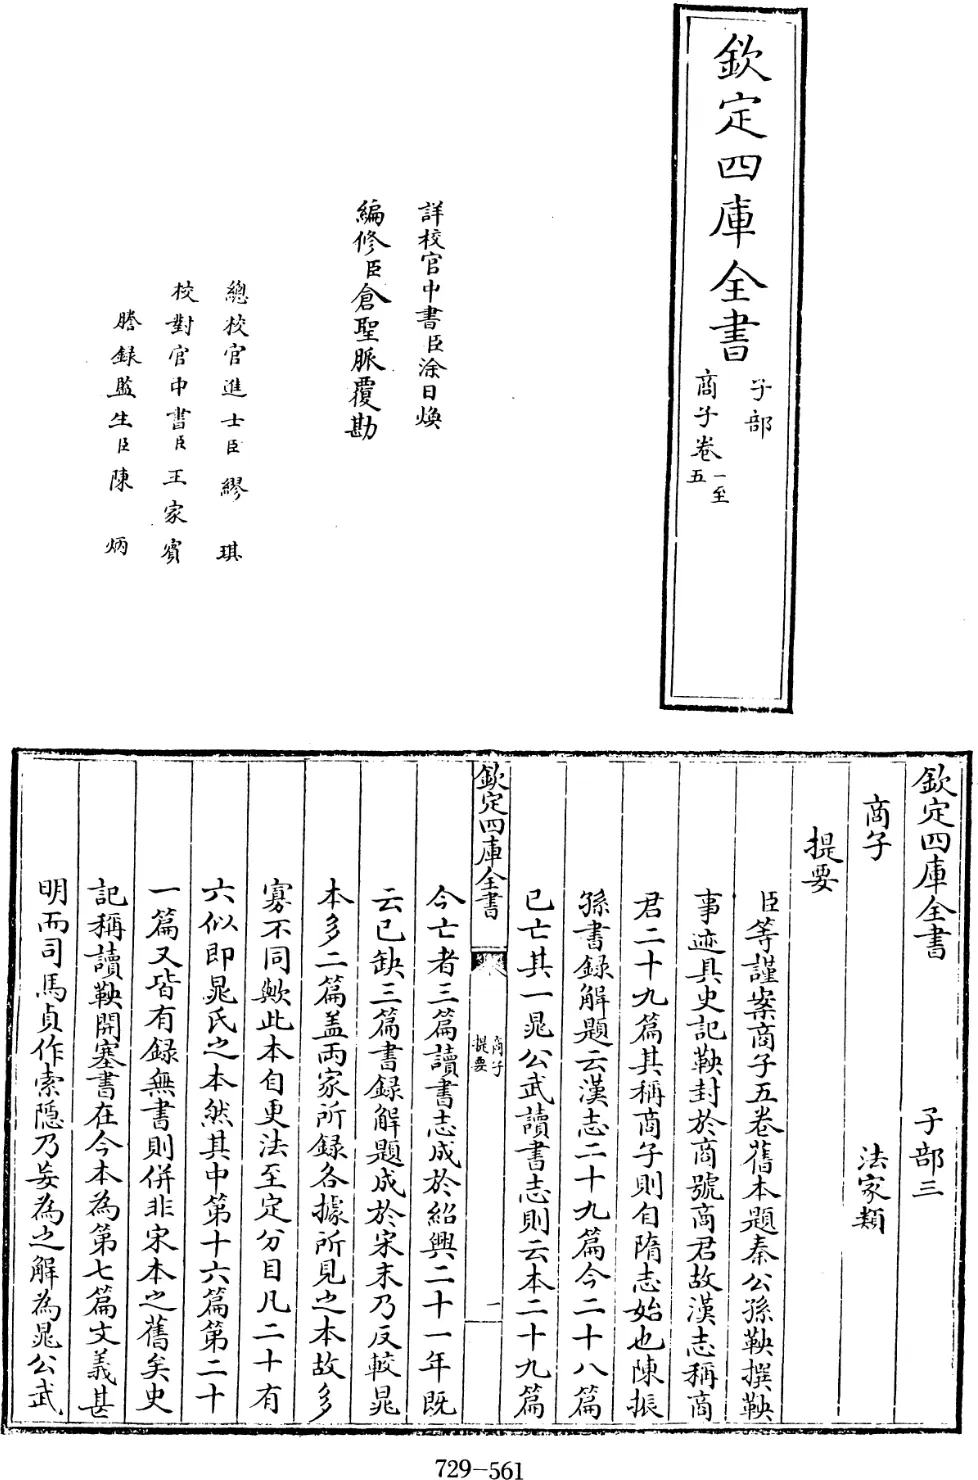 欽定四庫全書
子部
商子卷一至五
詳校官中書臣涂日煥
編修臣倉聖脈覆勘
總校官進士臣繆琪
校對官中書臣王家賓
謄錄監生臣陳炳
欽定四庫全書　子部三
商子　法家類
提要
臣等謹案商子五卷舊本題秦公孫鞅撰鞅
事迹具史記鞅封於商號商君故漢志稱商
君二十九篇其稱商子則自隋志始也陳振
孫書録解題云漢志二十九篇今二十八篇
已亡其一晁公武讀書志則云本二十九篇
欽定四庫全書
商子
提要
一
今亡者三篇讀書志成於紹興二十一年既
云已缺三篇書録解題成於宋末乃反較晁
本多二篇蓋兩家所録各據所見之本故多
寡不同歟此本自更法至定分目凡二十有
六似即晁氏之本然其中第十六篇第二十
一篇又皆有録無書則併非宋本之舊矣史
記稱讀鞅開塞書在今本為第七篇文義甚
明而司馬貞作索隱乃妄為之解為晁公武
729-561